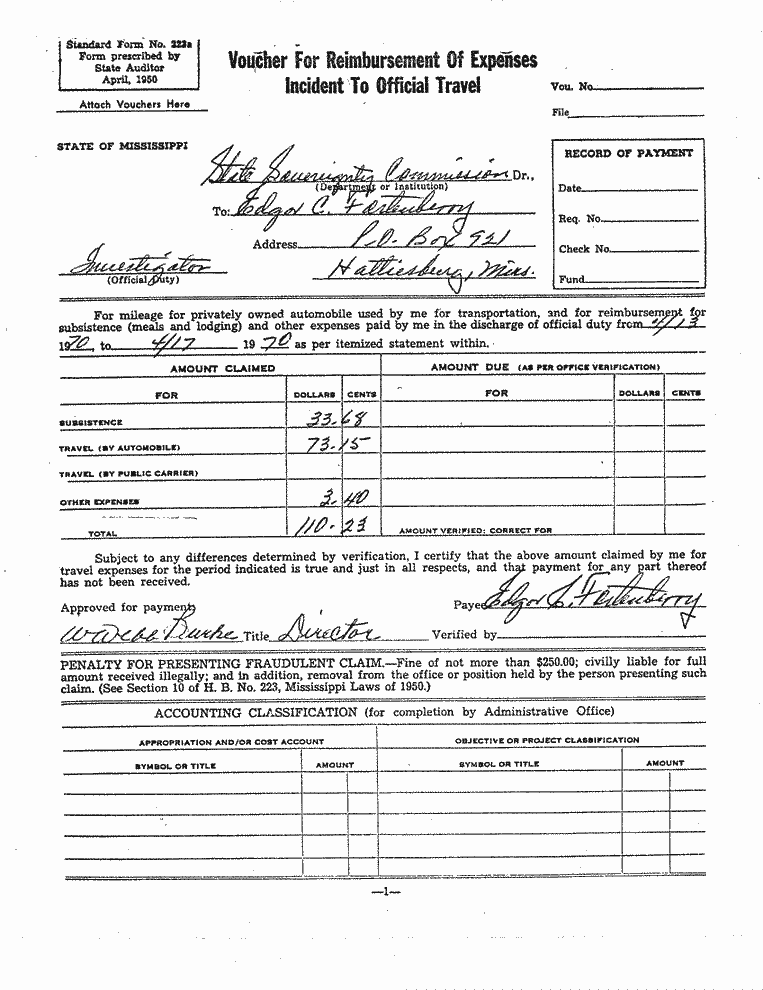 Standard Form No. 223a
Form prescribed by
State Auditor
April, 1950
Attach Vouchers Here
Voucher For Reimbursement Of Expenses
Incident To Official Travel
Vou. No.
File
STATE OF MISSISSIPPI
State Sovereignty Commission Dr.,
(Department or Institution)
To: Edgar C. Fortenberry
Address P.O. Box 921
Investigator
(Official Duty)
Hattiesburg, Miss.
RECORD OF PAYMENT
Date
Req. No.
Check No.
Fund
For mileage for privately owned automobile used by me for transportation, and for reimbursement for
subsistence (meals and lodging) and other expenses paid by me in the discharge of official duty from 4/13
1970, to 4/17 1970 as per itemized statement within.
AMOUNT CLAIMED AMOUNT DUE (AS PER OFFICE VERIFICATION)
FOR DOLLARS CENTS FOR DOLLARS CENTS
SUBSISTENCE 33.68
TRAVEL (BY AUTOMOBILE) 73.15
TRAVEL (BY PUBLIC CARRIER)
OTHER EXPENSES 3.40
TOTAL 110.23 AMOUNT VERIFIED: CORRECT FOR
Subject to any differences determined by verification, I certify that the above amount claimed by me for
travel expenses for the period indicated is true and just in all respects, and that payment for any part thereof
has not been received.
Approved for payment Payee Edgar C. Fortenberry
Webb Burke Title Director Verified by
PENALTY FOR PRESENTING FRAUDULENT CLAIM.—Fine of not more than $250.00; civilly liable for full
amount received illegally; and in addition, removal from the office or position held by the person presenting such
claim. (See Section 10 of H. B. No. 223, Mississippi Laws of 1950.)
ACCOUNTING CLASSIFICATION (for completion by Administrative Office)
APPROPRIATION AND/OR COST ACCOUNT OBJECTIVE OR PROJECT CLASSIFICATION
SYMBOL OR TITLE AMOUNT SYMBOL OR TITLE AMOUNT
—1—